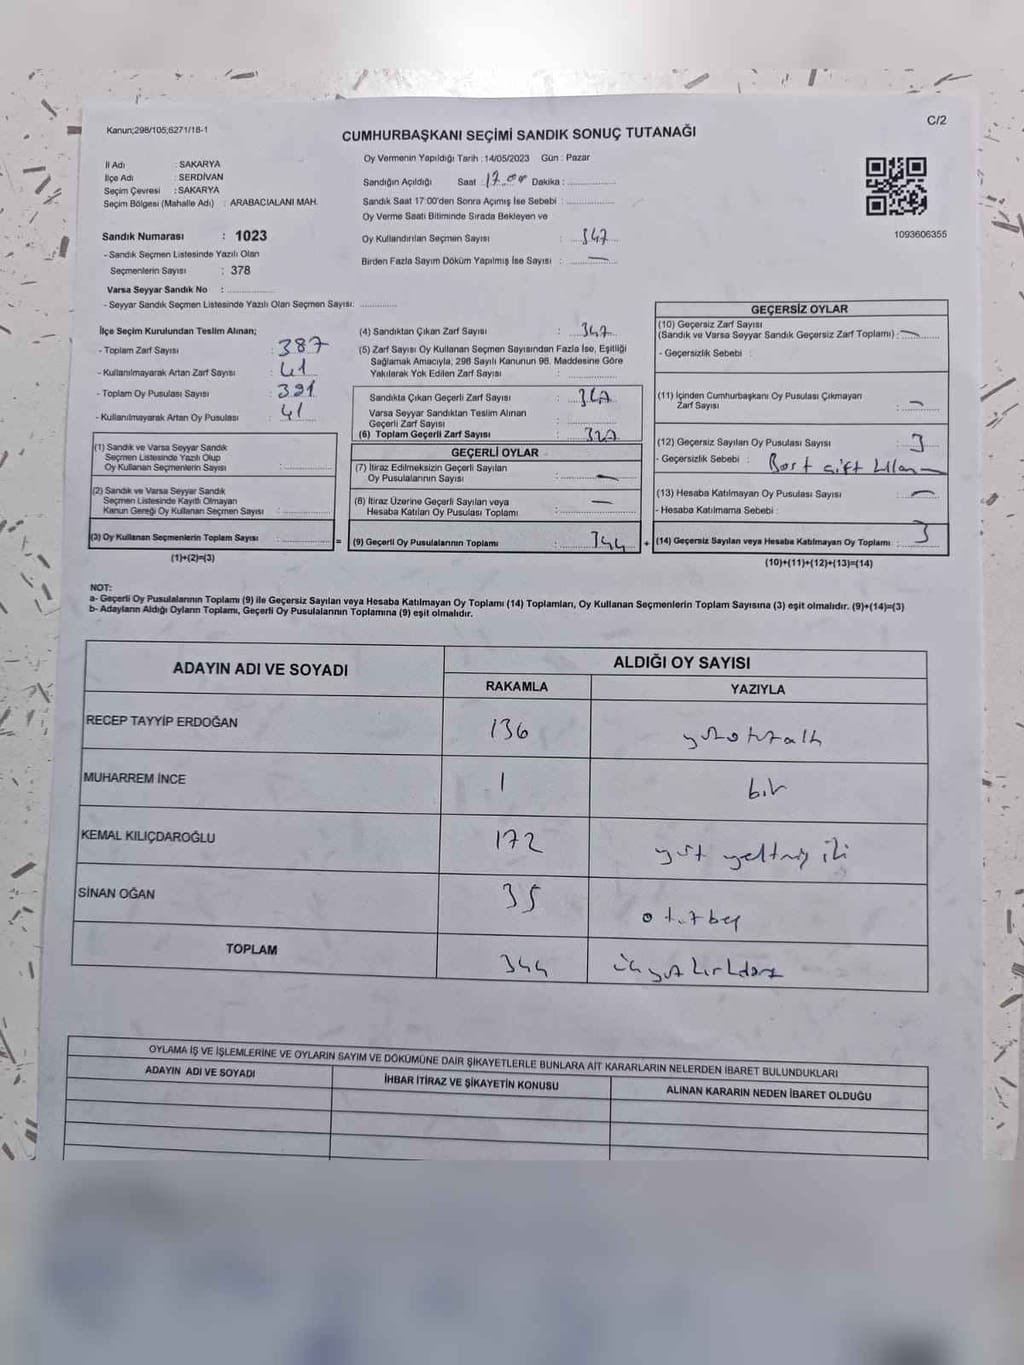 Kanun;298/105;6271/18-1
C/2
CUMHURBAŞKANI SEÇİMİ SANDIK SONUÇ TUTANAĞI
İl Adı : SAKARYA
İlçe Adı : SERDİVAN
Seçim Çevresi : SAKARYA
Seçim Bölgesi (Mahalle Adı) : ARABACIALANI MAH.
Sandık Numarası : 1023
- Sandık Seçmen Listesinde Yazılı Olan
Seçmenlerin Sayısı : 378
Varsa Seyyar Sandık No :
- Seyyar Sandık Seçmen Listesinde Yazılı Olan Seçmen Sayısı:
Oy Vermenin Yapıldığı Tarih : 14/05/2023 Gün : Pazar
Sandığın Açıldığı Saat : 17.00 Dakika :
Sandık Saat 17:00'den Sonra Açımış İse Sebebi :
Oy Verme Saati Bitiminde Sırada Bekleyen ve
Oy Kullandırılan Seçmen Sayısı : 347
Birden Fazla Sayım Döküm Yapılmış İse Sayısı : —
1093606355
İlçe Seçim Kurulundan Teslim Alınan;
- Toplam Zarf Sayısı : 387
- Kullanılmayarak Artan Zarf Sayısı : 41
- Toplam Oy Pusulası Sayısı : 391
- Kullanılmayarak Artan Oy Pusulası : 41
(1) Sandık ve Varsa Seyyar Sandık
Seçmen Listesinde Yazılı Olup
Oy Kullanan Seçmenlerin Sayısı :
(2) Sandık ve Varsa Seyyar Sandık
Seçmen Listesinde Kayıtlı Olmayan
Kanun Gereği Oy Kullanan Seçmen Sayısı :
(3) Oy Kullanan Seçmenlerin Toplam Sayısı :
(1)+(2)=(3)
=
(4) Sandıktan Çıkan Zarf Sayısı : 347
(5) Zarf Sayısı Oy Kullanan Seçmen Sayısından Fazla İse, Eşitliği
Sağlamak Amacıyla, 298 Sayılı Kanunun 98. Maddesine Göre
Yakılarak Yok Edilen Zarf Sayısı :
Sandıkta Çıkan Geçerli Zarf Sayısı : 347
Varsa Seyyar Sandıktan Teslim Alınan
Geçerli Zarf Sayısı :
(6) Toplam Geçerli Zarf Sayısı : 347
GEÇERLİ OYLAR
(7) İtiraz Edilmeksizin Geçerli Sayılan
Oy Pusulalarının Sayısı : —
(8) İtiraz Üzerine Geçerli Sayılan veya
Hesaba Katılan Oy Pusulası Toplamı : —
(9) Geçerli Oy Pusulalarının Toplamı : 344
+
GEÇERSİZ OYLAR
(10) Geçersiz Zarf Sayısı
(Sandık ve Varsa Seyyar Sandık Geçersiz Zarf Toplamı) : —
- Geçersizlik Sebebi :
(11) İçinden Cumhurbaşkanı Oy Pusulası Çıkmayan
Zarf Sayısı : —
(12) Geçersiz Sayılan Oy Pusulası Sayısı : 3
- Geçersizlik Sebebi : çift
(13) Hesaba Katılmayan Oy Pusulası Sayısı : —
- Hesaba Katılmama Sebebi :
(14) Geçersiz Sayılan veya Hesaba Katılmayan Oy Toplamı : 3
(10)+(11)+(12)+(13)=(14)
NOT:
a- Geçerli Oy Pusulalarının Toplamı (9) ile Geçersiz Sayılan veya Hesaba Katılmayan Oy Toplamı (14) Toplamları, Oy Kullanan Seçmenlerin Toplam Sayısına (3) eşit olmalıdır. (9)+(14)=(3)
b- Adayların Aldığı Oyların Toplamı, Geçerli Oy Pusulalarının Toplamına (9) eşit olmalıdır.
ADAYIN ADI VE SOYADI
ALDIĞI OY SAYISI
RAKAMLA YAZIYLA
RECEP TAYYİP ERDOĞAN 136 yüzotuzaltı
MUHARREM İNCE 1 bir
KEMAL KILIÇDAROĞLU 172 yüz yetmiş iki
SİNAN OĞAN 35 otuzbeş
TOPLAM 344 üçyüzkırkdört
OYLAMA İŞ VE İŞLEMLERİNE VE OYLARIN SAYIM VE DÖKÜMÜNE DAİR ŞİKAYETLERLE BUNLARA AİT KARARLARIN NELERDEN İBARET BULUNDUKLARI
ADAYIN ADI VE SOYADI İHBAR İTİRAZ VE ŞİKAYETİN KONUSU ALINAN KARARIN NEDEN İBARET OLDUĞU